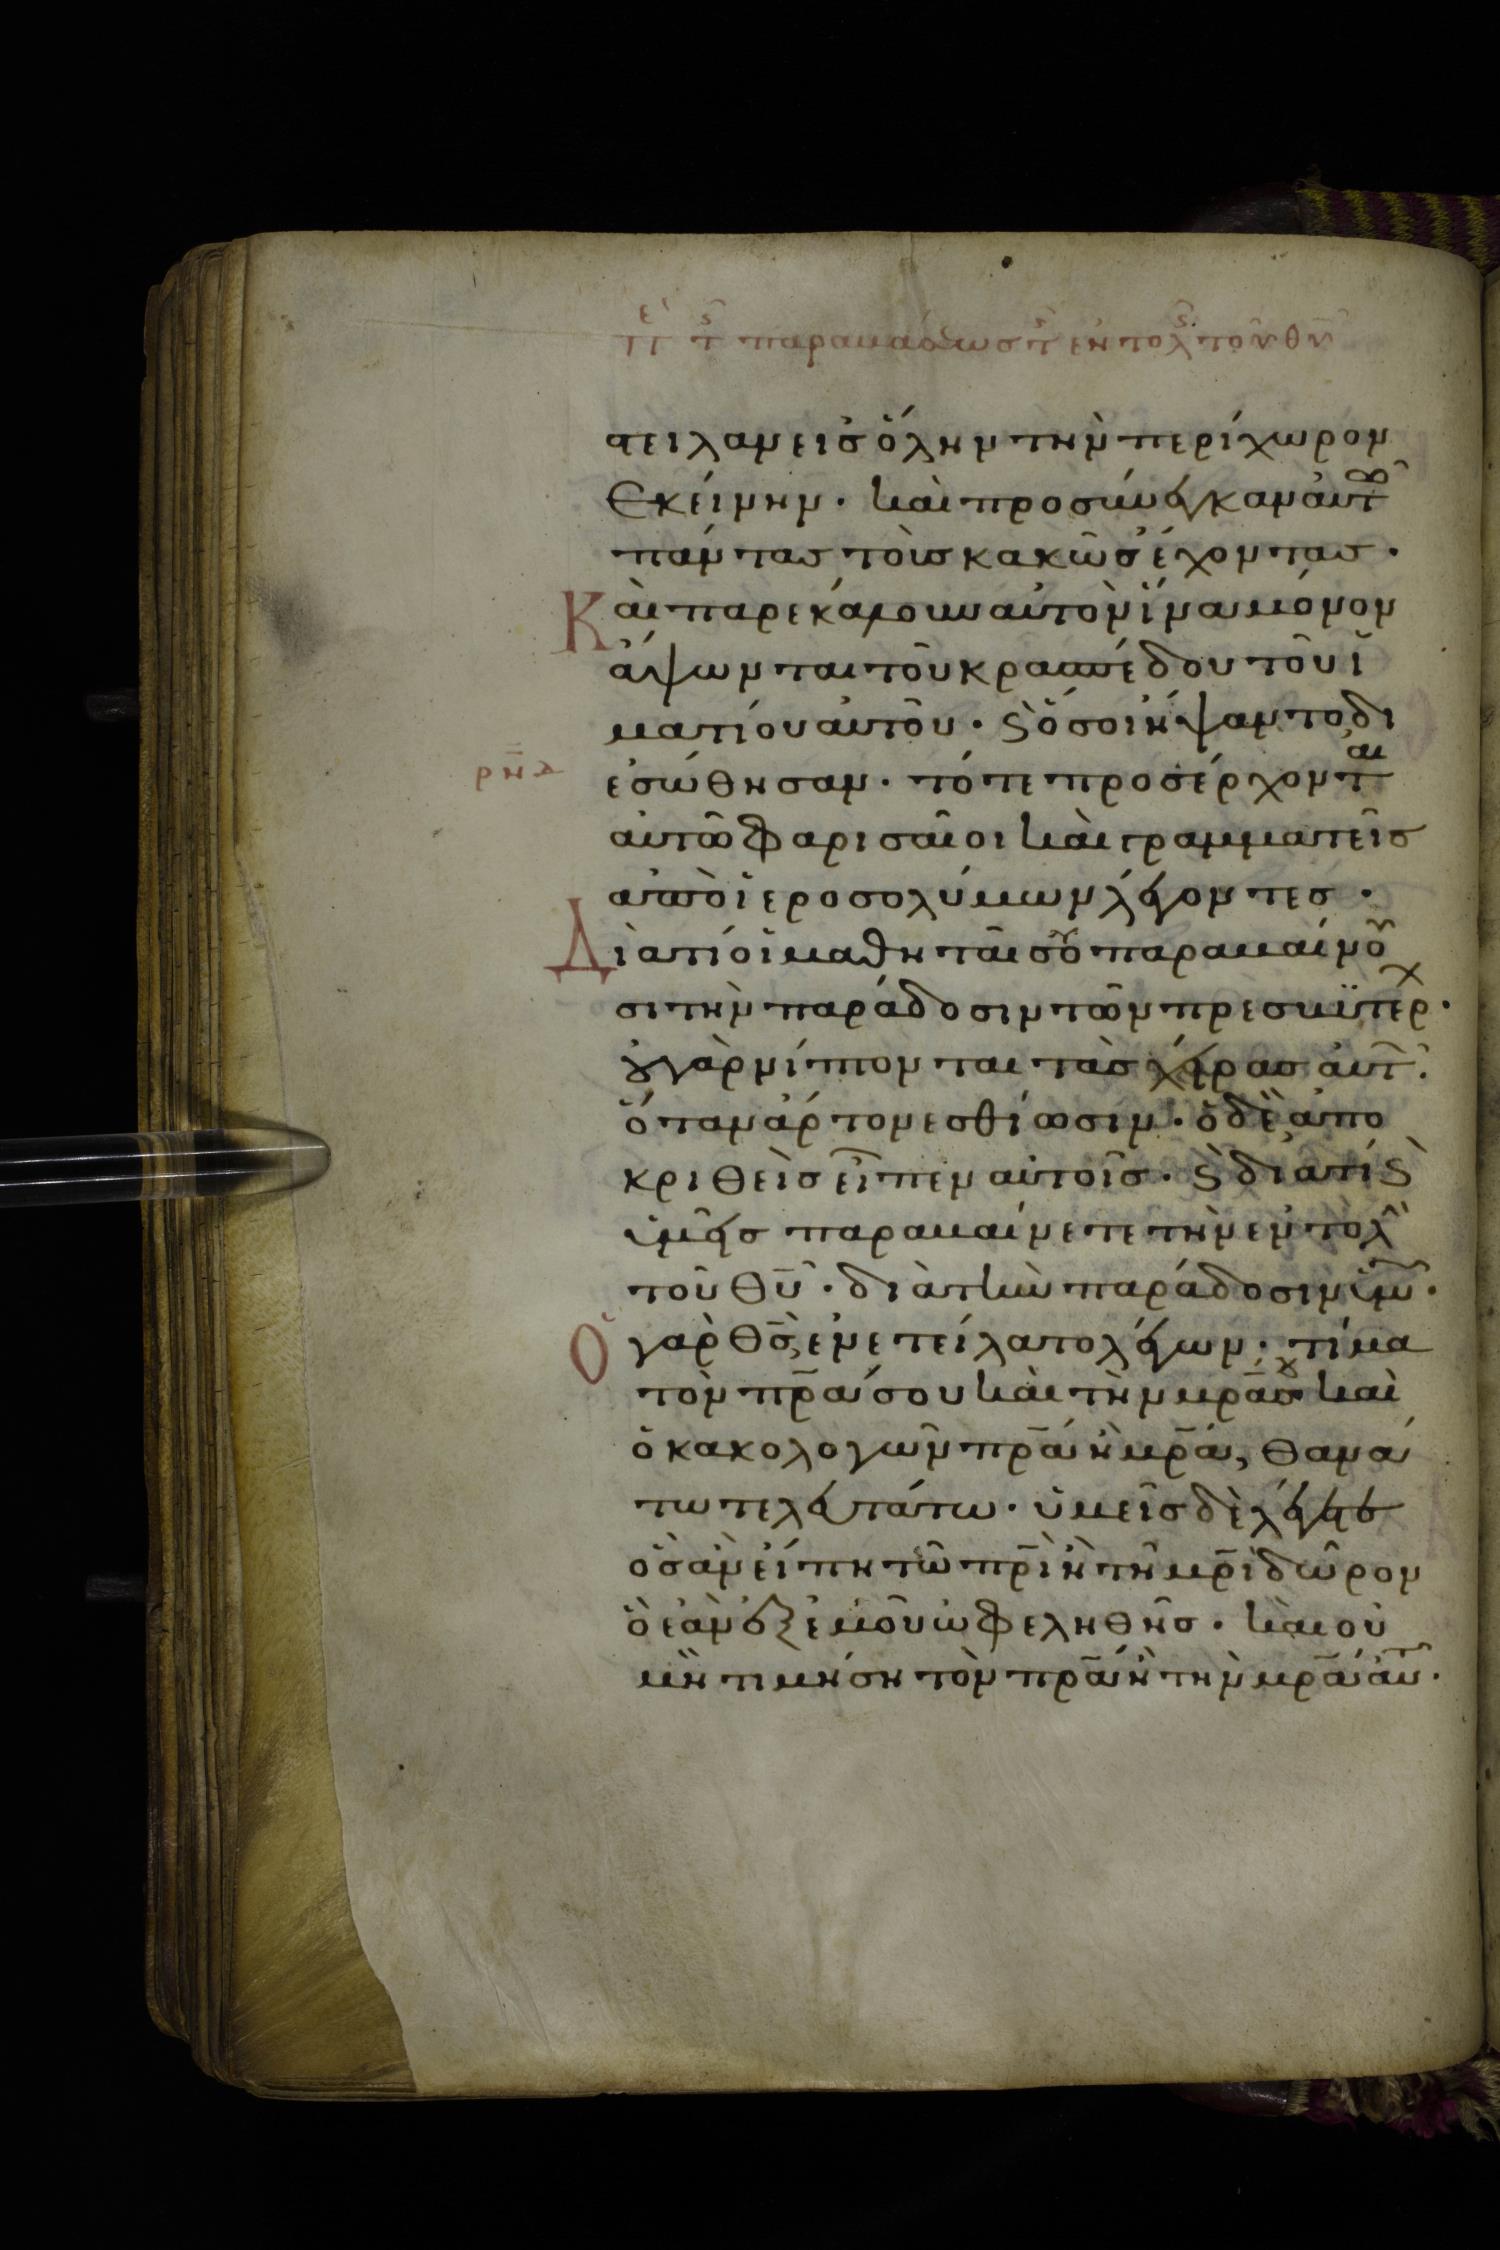 περὶ τῆς παραβάσεως τῶν ἐντολῶν τοῦ θυ
στειλαν εἰς ὅλην τὴν περίχωρον
ἐκείνην · καὶ προσήνεγκαν αὐτῶ
πάντας τοὺς κακῶς ἔχοντας ·
Καὶ παρεκάλουν αὐτὸν ἵνα μόνον
ἅψωνται τοῦ κρασπέδου τοῦ ἱ
ματίου αὐτοῦ · ϗ ὅσοι ἥψαντο δι
ρνδ
εσώθησαν · τότε προσέρχονται
αὐτῶ φαρισαῖοι καὶ γραμματεῖς
ἀπὸ ἱεροσολύμων λέγοντες ·
Διατί οἱ μαθηταί σου παραβαίνου
σι τὴν παράδοσιν τῶν πρεσβυτερ ·
οὐ γὰρ νίπτονται τὰς χεῖρας αὐτ ·
ὅταν ἄρτον ἐσθίωσιν · ὁ δὲ ἀπο
κριθεὶς εἶπεν αὐτοῖς · ϗ διατί ϗ
ὑμεῖς παραβαίνετε τὴν ἐντολὴν
τοῦ θυ · διὰ τὴν παράδοσιν ὑμῶν ·
Ὁ γὰρ θς ἐνετείλατο λέγων · τίμα
τὸν πρα σου καὶ τὴν μρα σου καὶ
ὁ κακολογῶν πρα ἢ μρα, θανά
τω τελευτάτω · ὑμεῖς δὲ λέγετε
ὃς ἂν εἴπη τῶ πρι ἢ τῆ μρι δῶρον
ὃ ἐὰν ἐξ ἐμοῦ ὠφεληθῆς · καὶ οὐ
μὴ τιμήση τὸν πρα ἢ τὴν μρα αὐτοῦ ·